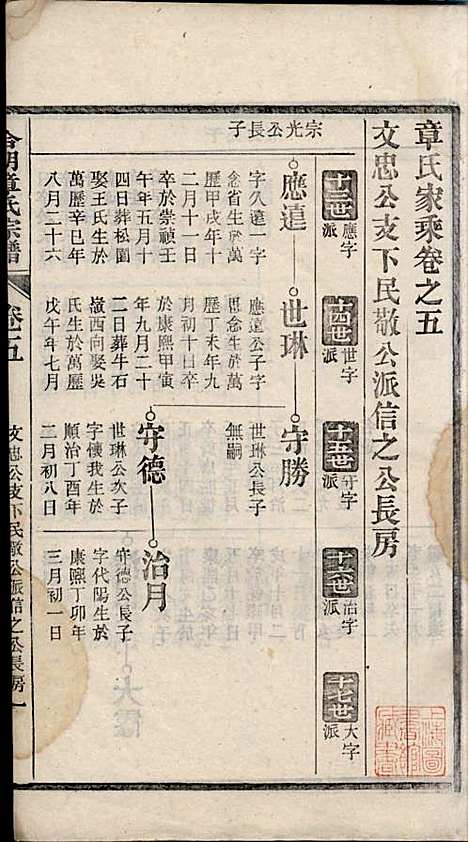 章氏家乘卷之五
文忠公支下民敬公派信之公長房
十三世
應字
派
十四世
世字
派
十五世
守字
派
十六世
治字
派
十七世
大字
派
宗光公長子
應遠
字久遠一字
念省生於萬
曆甲戌年十
二月十一日
卒於崇禎壬
午年五月十
四日葬松園
娶王氏生於
萬曆辛巳年
八月二十六
世琳
應遠公子字
思念生於萬
曆丁未年九
月初十日卒
於康熙甲寅
年九月二十
二日葬牛石
嶺西向娶吳
氏生於萬曆
戊午年七月
守勝
世琳公長子
無嗣
守德
世琳公次子
字懷我生於
順治丁酉年
二月初八日
治月
守德公長子
字代陽生於
康熙丁卯年
三月初一日
章氏宗譜
卷五
文忠公支下民敬公派信之公長房
一
上海圖
書館
藏書